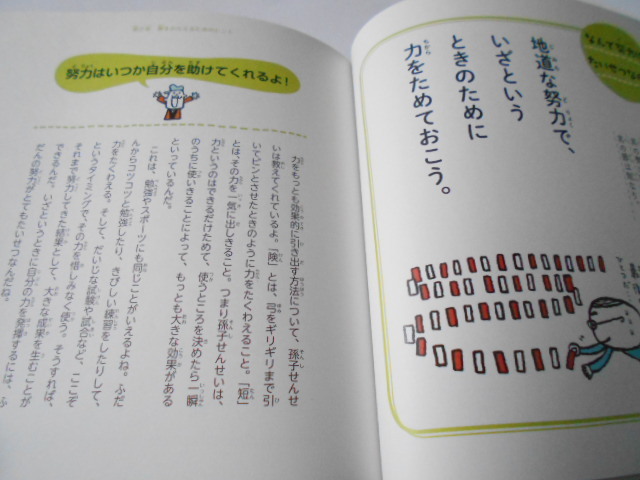 なんで努力が
たいせつな
地道な努力で、
いざという
ときのために
力をためておこう。
努力はいつか自分を助けてくれるよ!
力をもっとも効果的に引き出す方法について、孫子せんせ
いは教えてくれているよ。「険」とは、弓をギリギリまで引
いてピンとさせたときのように力をたくわえること。「短」
とは、その力を一気に出しきること。つまり孫子せんせいは、
力というのはできるだけためて、使うところを決めたら一瞬
のうちに使いきることによって、もっとも大きな効果がある
といっているんだ。
これは、勉強やスポーツにも同じことがいえるよね。ふだ
んからコツコツと勉強したり、きびしい練習をしたりして、
力をたくわえる。そして、だいじな試験や試合など、ここぞ
というタイミングで、その力を惜しみなく使う。そうすれば、
それまで努力してきた結果として、大きな成果を生むことが
できるんだ。いざというときに自分の力を発揮するには、ふ
だんの努力がとてもたいせつなんだね。